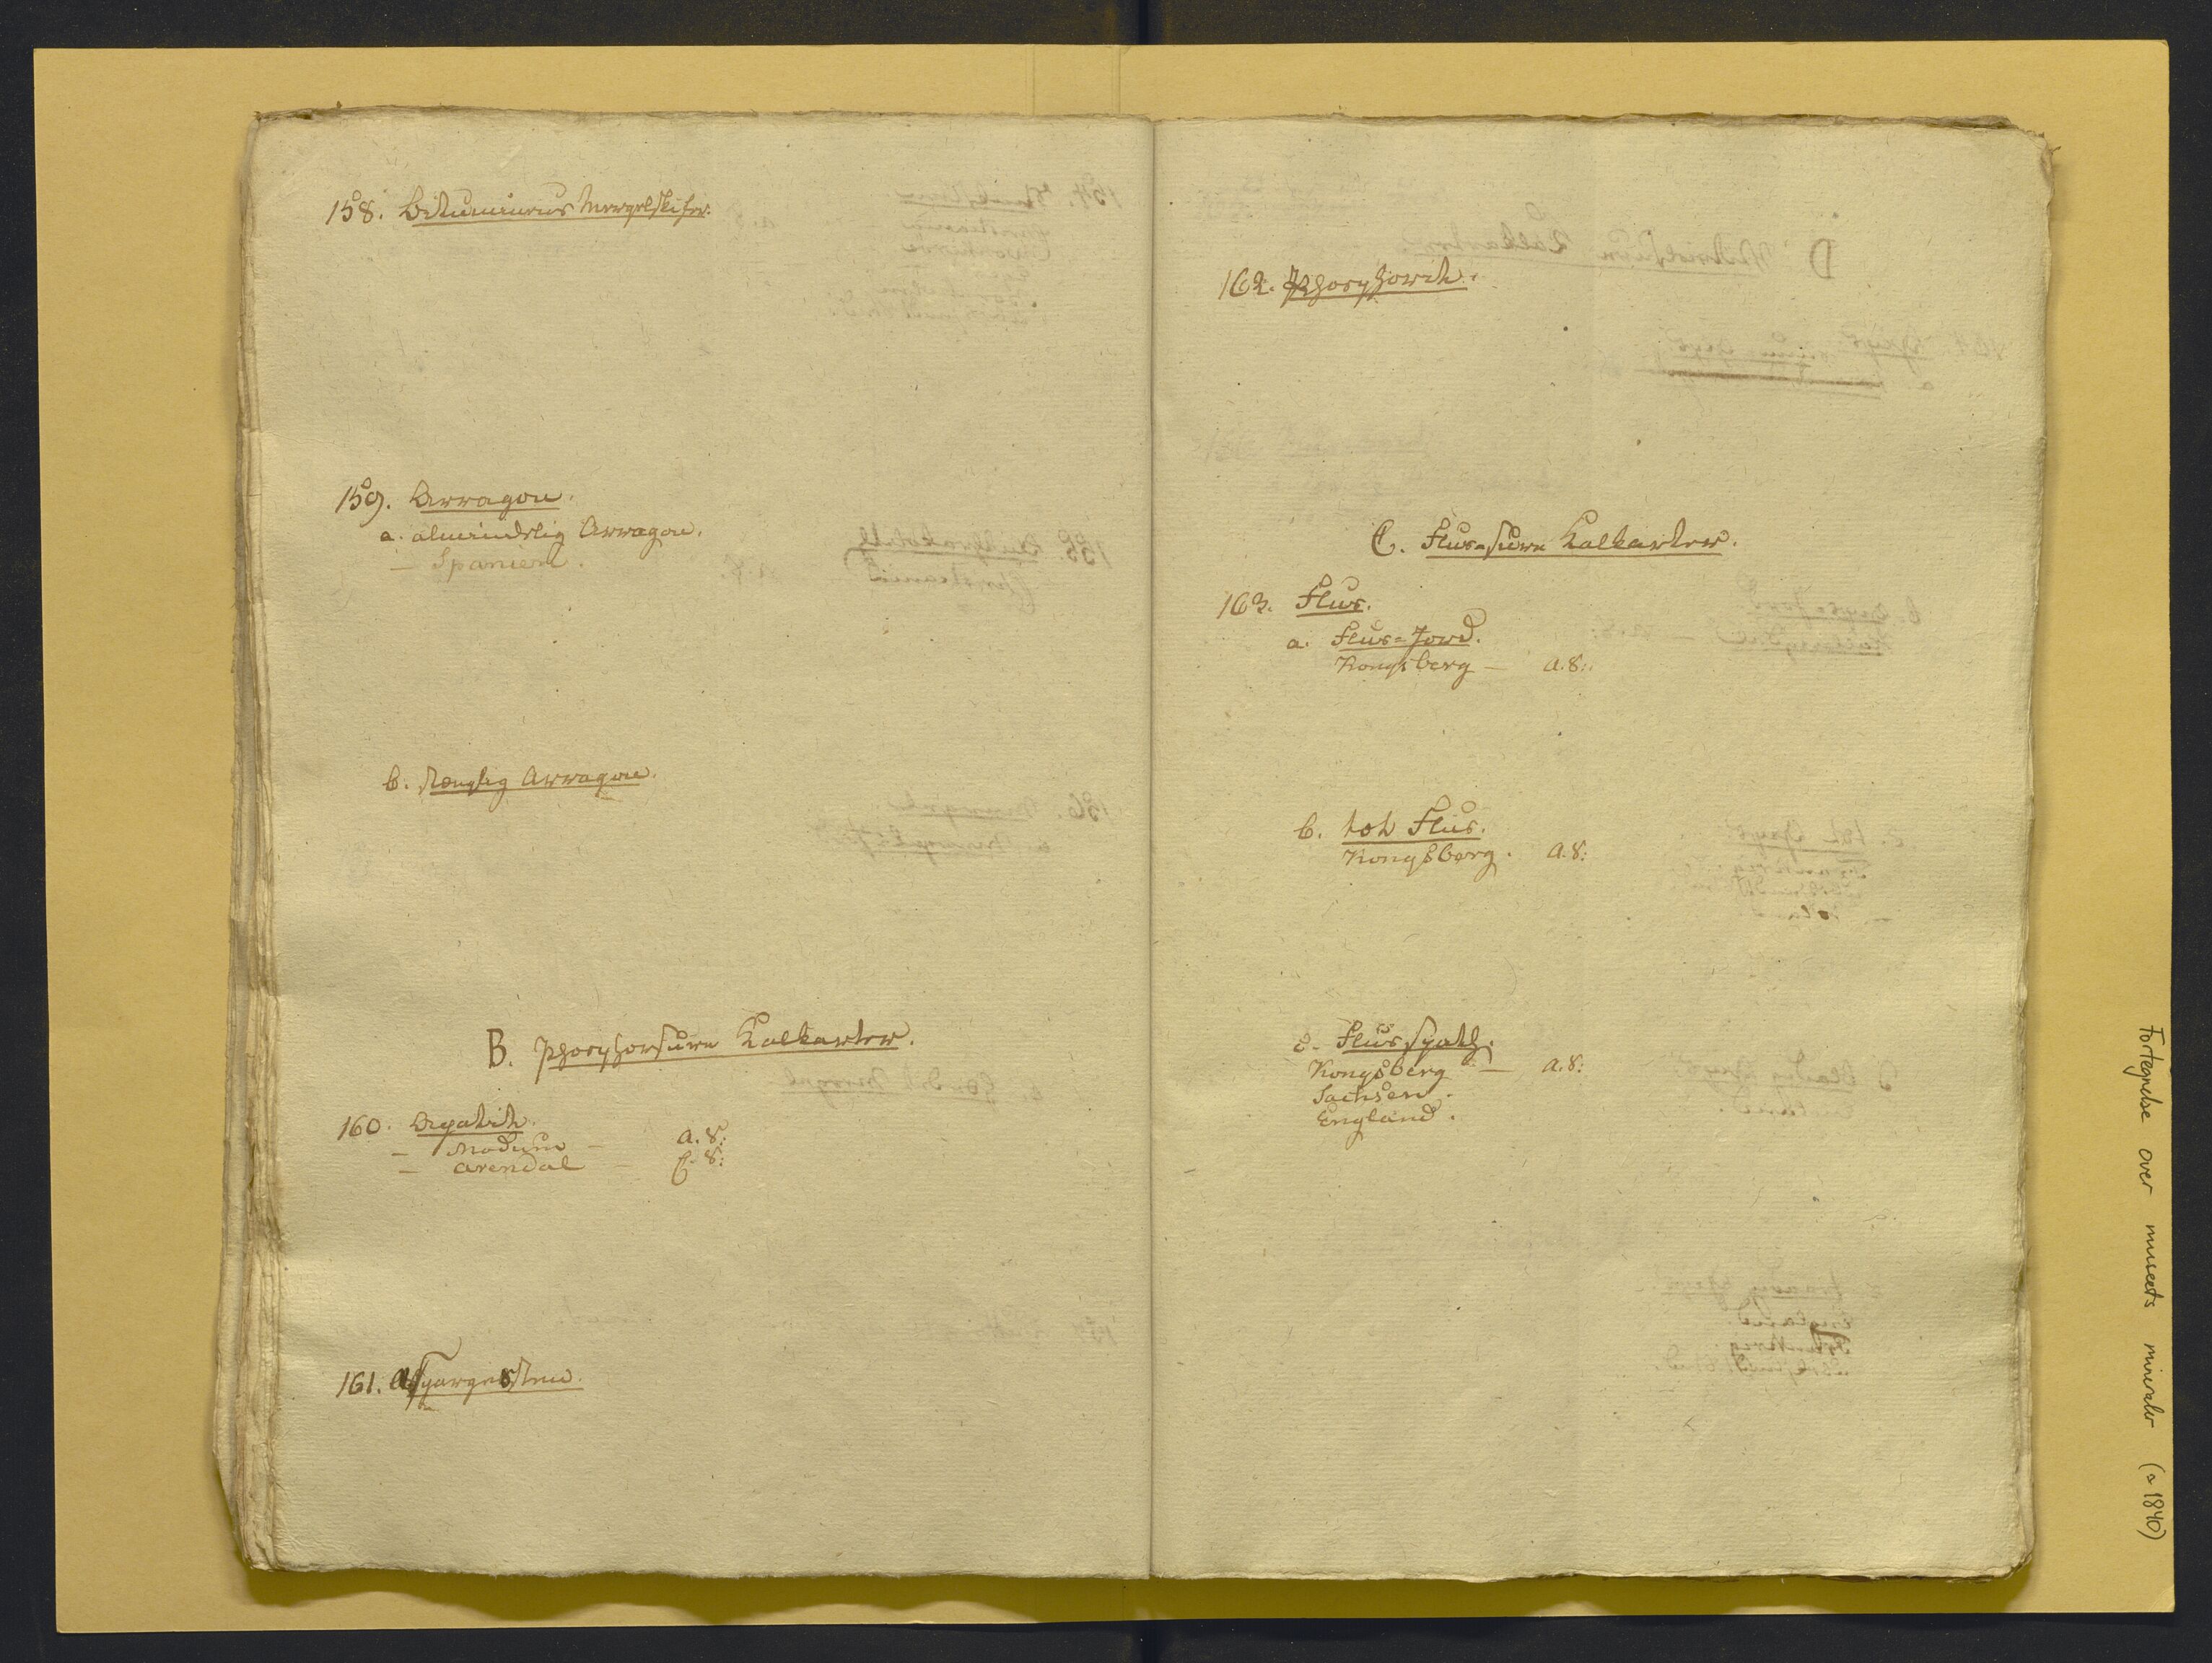 158. Bituminøs Mergelskifer.
159. Arragon.
a. almindelig Arragon.
— Spanien.
b. stænglig Arragon.
B. Phosphorsure Kalkarter.
160. Apatit.
— Modum — a. 8:
— Arendal — C. 8:
161. Aspargessteen.
162. Phosphorit.
C. Flus-sure Kalkarter.
163. Flus.
a. Flus-Jord.
Kongsberg — a. 8:
b. tæt Flus.
Kongsberg. a. 8:
c. Flusspath.
Kongsberg — a. 8:
Sachsen.
England.
Fortegnelse over museets mineraler (ca 1840)